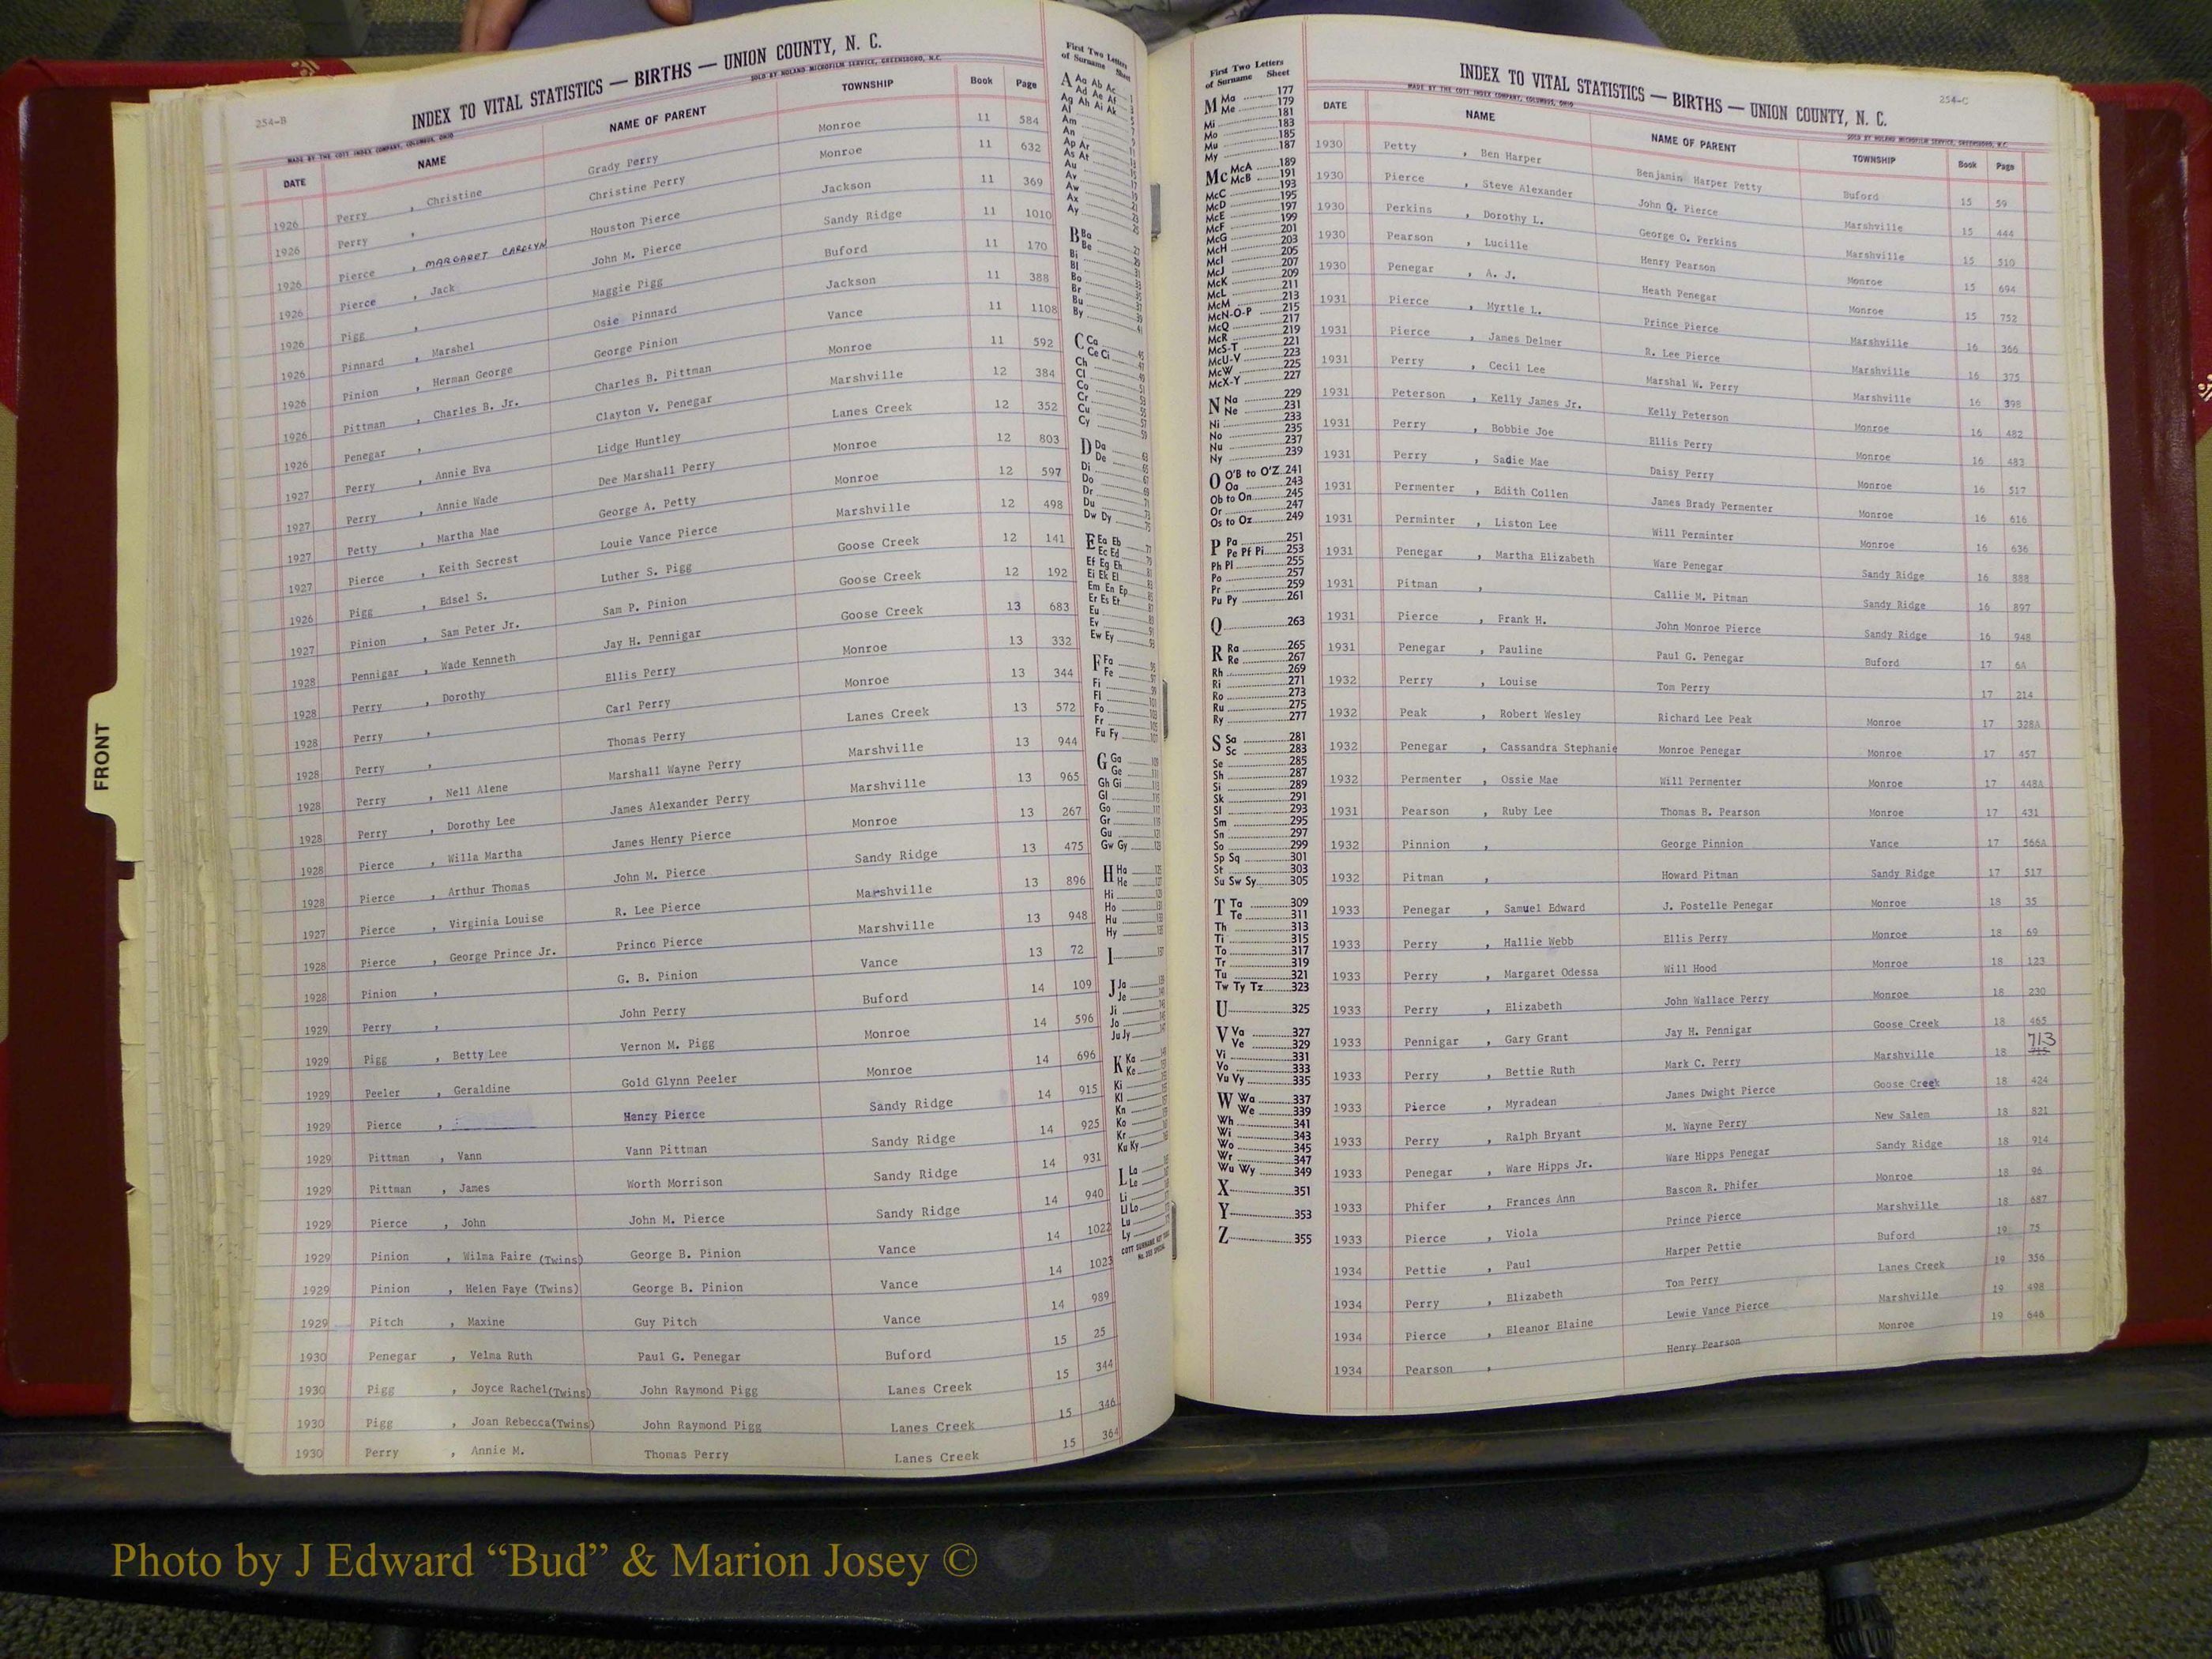 254-B
INDEX TO VITAL STATISTICS — BIRTHS — UNION COUNTY, N. C.
MADE BY THE COTT INDEX COMPANY, COLUMBUS, OHIO SOLD BY NOLAND MICROFILM SERVICE, GREENSBORO, N.C.
DATE NAME NAME OF PARENT TOWNSHIP Book Page
1926 Perry , Christine Grady Perry Monroe 11 584
1926 Perry , Christine Perry Monroe 11 632
1926 Pierce , MARGARET CAROLYN Houston Pierce Jackson 11 369
1926 Pierce , Jack John M. Pierce Sandy Ridge 11 1010
1926 Pigg , Maggie Pigg Buford 11 170
1926 Pinnard , Marshel Osie Pinnard Jackson 11 388
1926 Pinion , Herman George George Pinion Vance 11 1108
1926 Pittman , Charles B. Jr. Charles B. Pittman Monroe 11 592
1926 Penegar , Clayton V. Penegar Marshville 12 384
1927 Perry , Annie Eva Lidge Huntley Lanes Creek 12 352
1927 Perry , Annie Wade Dee Marshall Perry Monroe 12 803
1927 Petty , Martha Mae George A. Petty Monroe 12 597
1927 Pierce , Keith Secrest Louie Vance Pierce Marshville 12 498
1926 Pigg , Edsel S. Luther S. Pigg Goose Creek 12 141
1927 Pinion , Sam Peter Jr. Sam P. Pinion Goose Creek 12 192
1928 Pennigar , Wade Kenneth Jay H. Pennigar Goose Creek 13 683
1928 Perry , Dorothy Ellis Perry Monroe 13 332
1928 Perry , Carl Perry Monroe 13 344
1928 Perry , Thomas Perry Lanes Creek 13 572
1928 Perry , Nell Alene Marshall Wayne Perry Marshville 13 944
1928 Perry , Dorothy Lee James Alexander Perry Marshville 13 965
1928 Pierce , Willa Martha James Henry Pierce Monroe 13 267
1928 Pierce , Arthur Thomas John M. Pierce Sandy Ridge 13 475
1927 Pierce , Virginia Louise R. Lee Pierce Marshville 13 896
1928 Pierce , George Prince Jr. Prince Pierce Marshville 13 948
1928 Pinion , G. B. Pinion Vance 13 72
1929 Perry , John Perry Buford 14 109
1929 Pigg , Betty Lee Vernon M. Pigg Monroe 14 596
1929 Peeler , Geraldine Gold Glynn Peeler Monroe 14 696
1929 Pierce , Henry Pierce Sandy Ridge 14 915
1929 Pittman , Vann Vann Pittman Sandy Ridge 14 925
1929 Pittman , James Worth Morrison Sandy Ridge 14 931
1929 Pierce , John John M. Pierce Sandy Ridge 14 940
1929 Pinion , Wilma Faire (Twins) George B. Pinion Vance 14 1022
1929 Pinion , Helen Faye (Twins) George B. Pinion Vance 14 1023
1929 Pitch , Maxine Guy Pitch Vance 14 989
1930 Penegar , Velma Ruth Paul G. Penegar Buford 15 25
1930 Pigg , Joyce Rachel(Twins) John Raymond Pigg Lanes Creek 15 344
1930 Pigg , Joan Rebecca(Twins) John Raymond Pigg Lanes Creek 15 346
1930 Perry , Annie M. Thomas Perry Lanes Creek 15 364
FRONT
First Two Letters
of Surname Sheet
A Aa Ab Ac
Ad Ae Af
Ag Ah Ai Ak
Al
Am
An
Ap Ar
As At
Au
Av
Aw
Ax
Ay
B Ba
Be
Bi
Bl
Bo
Br
Bu
By
C Ca
Ce Ci
Ch
Cl
Co
Cr
Cu
Cy
D Da
De
Di
Do
Dr
Du
Dw Dy
E Ea Eb
Ec Ed
Ef Eg Eh
Ei Ek El
Em En Ep
Er Es Et
Eu
Ev
Ew Ey
F Fa
Fe
Fi
Fl
Fo
Fr
Fu Fy
G Ga
Ge
Gh Gi
Gl
Go
Gr
Gu
Gw Gy
H Ha
He
Hi
Ho
Hu
Hy
I
J Ja
Je
Ji
Jo
Ju Jy
K Ka
Ke
Ki
Kl
Kn
Ko
Kr
Ku Ky
L La
Le
Li
Ll Lo
Lu
Ly
First Two Letters
of Surname Sheet
M Ma 177
Me 179
Mi 181
Mo 183
Mu 185
My 187
Mc McA 189
McB 191
McC 193
McD 195
McE 197
McF 199
McG 201
McH 203
McI 205
McJ 207
McK 209
McL 211
McM 213
McN-O-P 215
McQ 217
McR 219
McS-T 221
McU-V 223
McW 225
McX-Y 227
N Na 229
Ne 231
Ni 233
No 235
Nu 237
Ny 239
O O'B to O'Z 241
Oa 243
Ob to On 245
Or 247
Os to Oz 249
P Pa 251
Pe Pf Pi 253
Ph Pl 255
Po 257
Pr 259
Pu Py 261
Q 263
R Ra 265
Re 267
Rh 269
Ri 271
Ro 273
Ru 275
Ry 277
S Sa 281
Sc 283
Se 285
Sh 287
Si 289
Sk 291
Sl 293
Sm 295
Sn 297
So 299
Sp Sq 301
St 303
Su Sw Sy 305
T Ta 309
Te 311
Th 313
Ti 315
To 317
Tr 319
Tu 321
Tw Ty Tz 323
U 325
V Va 327
Ve 329
Vi 331
Vo 333
Vu Vy 335
W Wa 337
We 339
Wh 341
Wi 343
Wo 345
Wr 347
Wu Wy 349
X 351
Y 353
Z 355
254-C
INDEX TO VITAL STATISTICS — BIRTHS — UNION COUNTY, N. C.
MADE BY THE COTT INDEX COMPANY, COLUMBUS, OHIO SOLD BY NOLAND MICROFILM SERVICE, GREENSBORO, N.C.
DATE NAME NAME OF PARENT TOWNSHIP Book Page
1930 Petty , Ben Harper Benjamin Harper Petty Buford 15 59
1930 Pierce , Steve Alexander John Q. Pierce Marshville 15 444
1930 Perkins , Dorothy L. George O. Perkins Marshville 15 510
1930 Pearson , Lucille Henry Pearson Monroe 15 694
1930 Penegar , A. J. Heath Penegar Monroe 15 752
1931 Pierce , Myrtle L. Prince Pierce Marshville 16 366
1931 Pierce , James Delmer R. Lee Pierce Marshville 16 375
1931 Perry , Cecil Lee Marshal W. Perry Marshville 16 398
1931 Peterson , Kelly James Jr. Kelly Peterson Monroe 16 482
1931 Perry , Bobbie Joe Ellis Perry Monroe 16 483
1931 Perry , Sadie Mae Daisy Perry Monroe 16 517
1931 Permenter , Edith Collen James Brady Permenter Monroe 16 616
1931 Perminter , Liston Lee Will Perminter Monroe 16 636
1931 Penegar , Martha Elizabeth Ware Penegar Sandy Ridge 16 888
1931 Pitman , Callie M. Pitman Sandy Ridge 16 897
1931 Pierce , Frank H. John Monroe Pierce Sandy Ridge 16 948
1931 Penegar , Pauline Paul G. Penegar Buford 17 6A
1932 Perry , Louise Tom Perry 17 214
1932 Peak , Robert Wesley Richard Lee Peak Monroe 17 328A
1932 Penegar , Cassandra Stephanie Monroe Penegar Monroe 17 457
1932 Permenter , Ossie Mae Will Permenter Monroe 17 448A
1931 Pearson , Ruby Lee Thomas B. Pearson Monroe 17 431
1932 Pinnion , George Pinnion Vance 17 566A
1932 Pitman , Howard Pitman Sandy Ridge 17 517
1933 Penegar , Samuel Edward J. Postelle Penegar Monroe 18 35
1933 Perry , Hallie Webb Ellis Perry Monroe 18 69
1933 Perry , Margaret Odessa Will Hood Monroe 18 123
1933 Perry , Elizabeth John Wallace Perry Monroe 18 230
1933 Pennigar , Gary Grant Jay H. Pennigar Goose Creek 18 465
1933 Perry , Bettie Ruth Mark C. Perry Marshville 18 713
1933 Pierce , Myradean James Dwight Pierce Goose Creek 18 424
1933 Perry , Ralph Bryant M. Wayne Perry New Salem 18 821
1933 Penegar , Ware Hipps Jr. Ware Hipps Penegar Sandy Ridge 18 914
1933 Phifer , Frances Ann Bascom R. Phifer Monroe 18 96
1933 Pierce , Viola Prince Pierce Marshville 18 687
1934 Pettie , Paul Harper Pettie Buford 19 75
1934 Perry , Elizabeth Tom Perry Lanes Creek 19 356
1934 Pierce , Eleanor Elaine Lewie Vance Pierce Marshville 19 498
1934 Pearson , Henry Pearson Monroe 19 646
Photo by J Edward “Bud” & Marion Josey ©